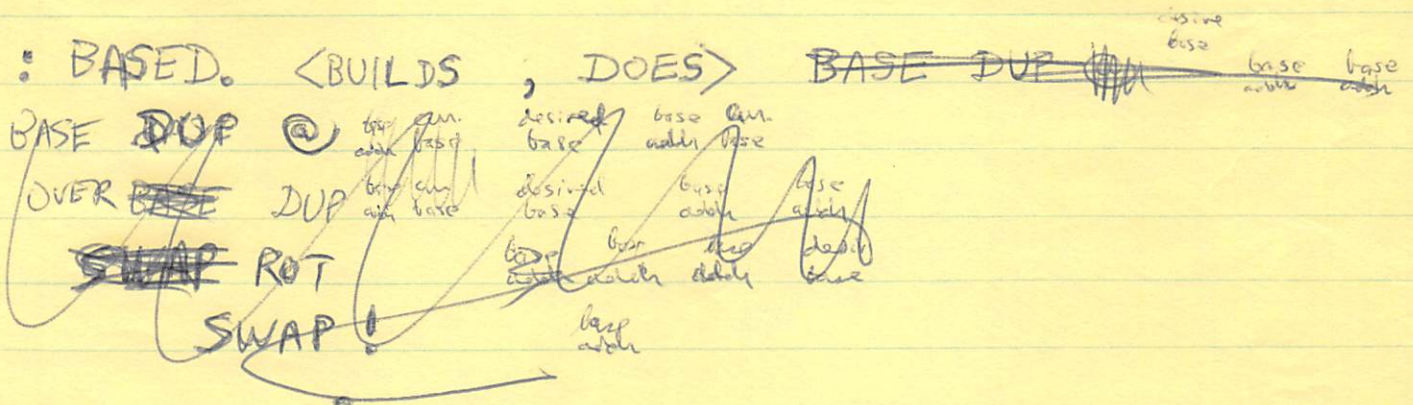 desire
base
: BASED. <BUILDS , DOES> BASE DUP base addr base addr
BASE DUP @ base addr curr. base desired base base addr curr. base
OVER BASE DUP base addr curr base desired base base addr base addr
SWAP ROT base addr base addr base addr desir base
SWAP ! base addr